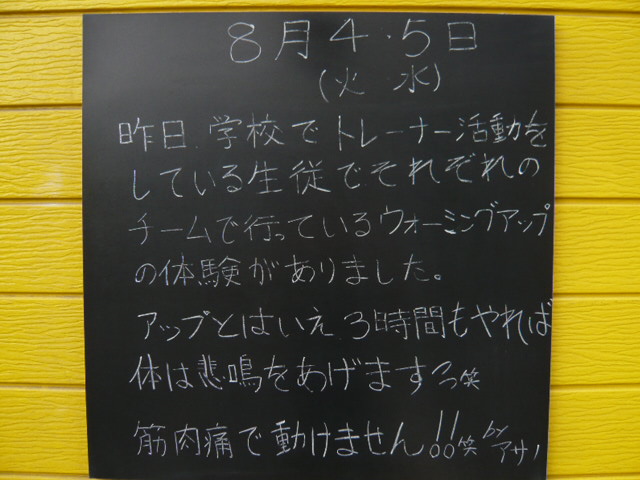 8月4.5日
(火 水)
昨日、学校でトレーナー活動を
している生徒でそれぞれの
チームで行っているウォーミングアップ
の体験がありました。
アップとはいえ3時間もやれば
体は悲鳴をあげますっ笑
筋肉痛で動けません!!笑 by アサノ